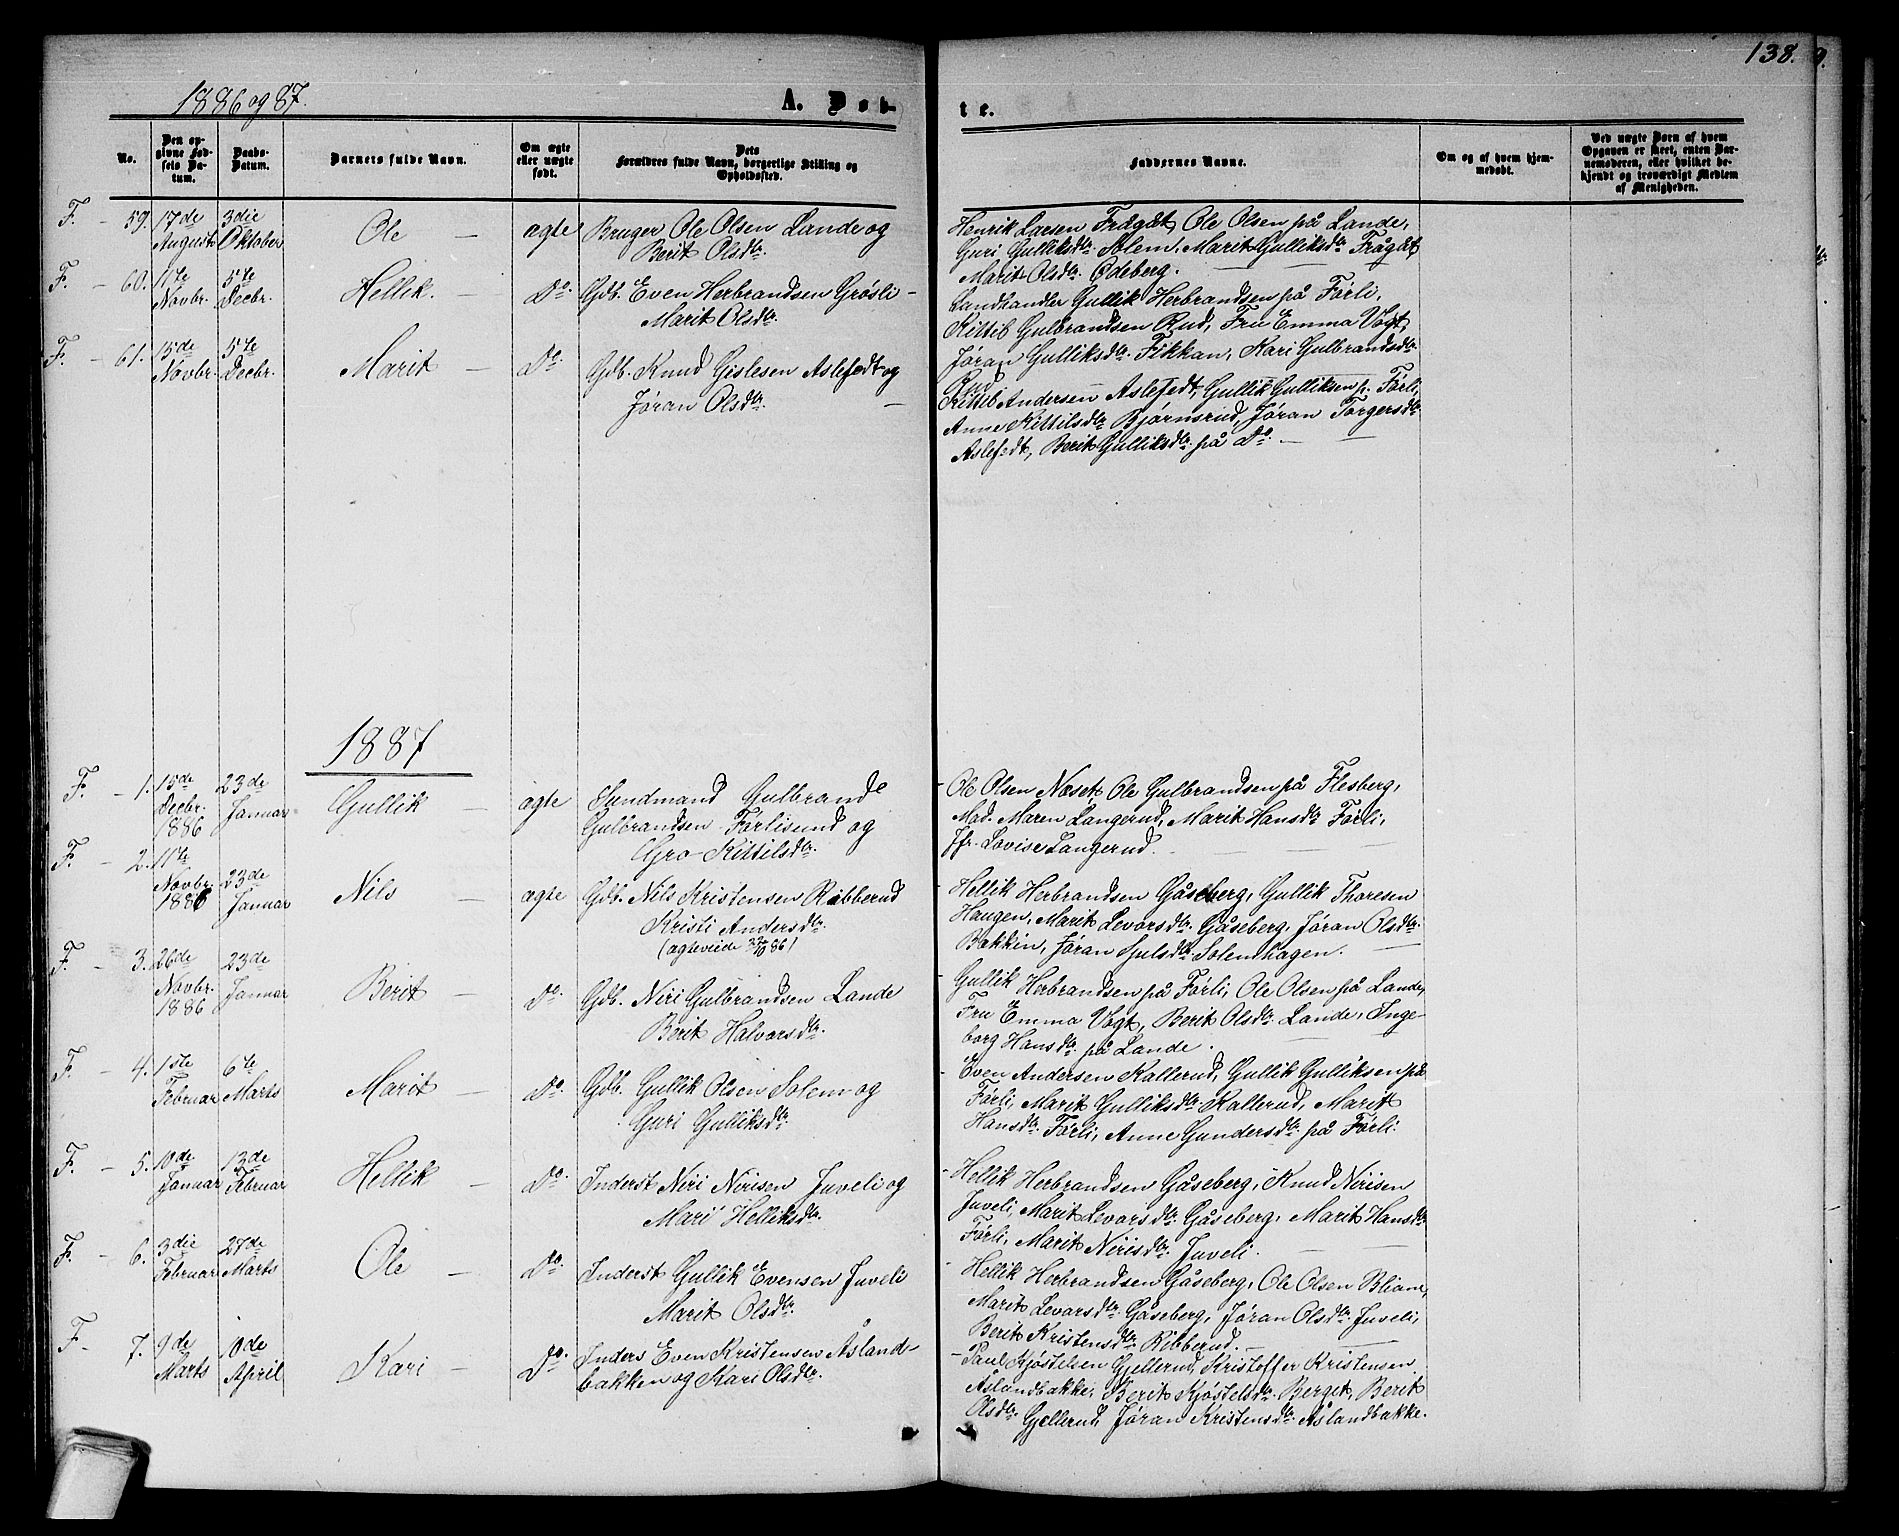 138.
1886 og 87.
A. Døb-
te.
No.
Den op-
givne Fød-
sels Da-
tum.
Daabs-
Datum.
Barnets fulde Navn.
Om ægte
eller uægte
født.
Dets
Forældres fulde Navn, borgerlige Stilling og
Opholdssted.
Faddernes Navne.
Om og af hvem hjem-
medøbt.
Ved uægte Børn af hvem
Opgaven er skeet, enten Bar-
nemoderen, eller hvilket be-
kjendt og troværdigt Medlem
af Menigheden.
F. - 59. 17de August 3die Oktober Ole - ægte Bruger Ole Olsen Lande og
Berit Olsdtr.
Henrik Larsen Frågåt, Ole Olsen på Lande,
Guri Gulliksdtr. Solem, Marit Gulliksdtr. Frågåt,
Marit Olsdtr. Ødeberg.
F. - 60. 11te Novbr. 5te Decbr. Hellik. - Do. Gdb. Even Herbrandsen Grøsli -
Marit Olsdtr.
Landhandler Gullik Herbrandsen på Førli,
Kittil Gulbrandsen Rud, Fru Emma Vogt,
Jøran Gulliksdtr. Fikkan, Kari Gulbrandsdtr.
Rud
F. - 61. 15de Novbr. 5te Decbr. Marit - Do. Gdb. Knud Gislesen Aslefedt og
Jøran Olsdtr. -
Kittil Andersen Aslefedt, Gullik Gulliksen p. Førli,
Anne Kittilsdtr. Bjørnsrud, Jøran Torgersdtr.
Aslefedt, Berit Gulliksdtr. på Do. -
1887
F. - 1. 15de Decbr. 1886 23de Januar Gullik - ægte Sundmand Gulbrand
Gulbrandsen Førlisund og
Gro Kittilsdtr.
Ole Olsen Næset, Ole Gulbrandsen på Flesberg,
Mad. Maren Langerud, Marit Hansdtr. Førli,
Jfr. Lovise Langerud.
F. - 2. 11te Novbr. 1886 23de Januar Nils - ægte Gdb. Nils Kristensen Ribberud
Kristi Andersdtr.
Hellik Herbrandsen Gåseberg, Gullik Thoresen
Haugen, Marit Levorsdtr. Gåseberg, Jøran Olsdtr.
Bakkin, Jøran Juulsdtr. Solemhagen.
F. - 3. 26de Novbr. 1886 23de Januar Berit - Do. Gdb. Niri Gulbrandsen Lande
Berit Halvorsdtr.
Gullik Herbrandsen på Førli, Ole Olsen på Lande,
Fru Emma Vogt, Berit Olsdtr. Lande, Inge-
borg Hansdtr. på Lande.
F. - 4. 1ste Februar 6te Marts Marit - Do. Gdb. Gullik Olsen Solem og
Guri Gulliksdtr.
Even Andersen Kallerud, Gullik Gulliksen på
Førli, Marit Gulliksdtr. Kallerud, Marit
Hansdtr. Førli, Anne Gundersdtr. på Førli.
F. - 5. 10de Januar 13de Februar Hellik - Do. Inderst Niri Nirisen Juveli og
Mari Helliksdtr.
Hellik Herbrandsen Gåseberg, Knud Nirisen
Juveli, Marit Levorsdtr. Gåseberg, Marit Hansdtr.
Førli, Marit Nirisdtr. Juveli.
F. - 6. 3die Februar 27de Marts Ole - Do. Inderst Gullik Evensen Juveli
Marit Olsdtr.
Hellik Herbrandsen Gåseberg, Ole Olsen Bliam,
Marit Levorsdtr. Gåseberg, Jøran Olsdtr. Juveli,
Berit Kristensdtr. Ribberud. -
F. - 7. 9de Marts 10de April Kari - Do. Inders Even Kristensen Åsland-
bakken og Kari Olsdtr.
Paul Kjøstelsen Gjellerud, Kristoffer Kristensen
Åslandbakke, Berit Kjøstelsdtr. Berget, Berit
Olsdtr. Gjellerud, Jøran Kristensdtr. Åslandbakke.